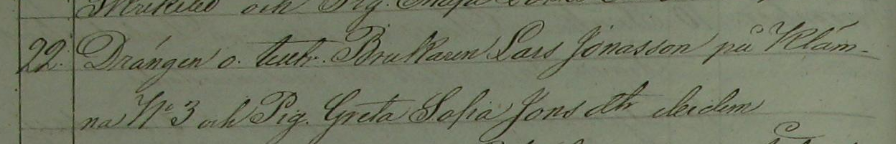 och Pig.
22. Drängen o. tuttr. Brukaren Lars Jonasson på Kläm-
na No 3 och Pig. Greta Sofia Jons dtr ibidem